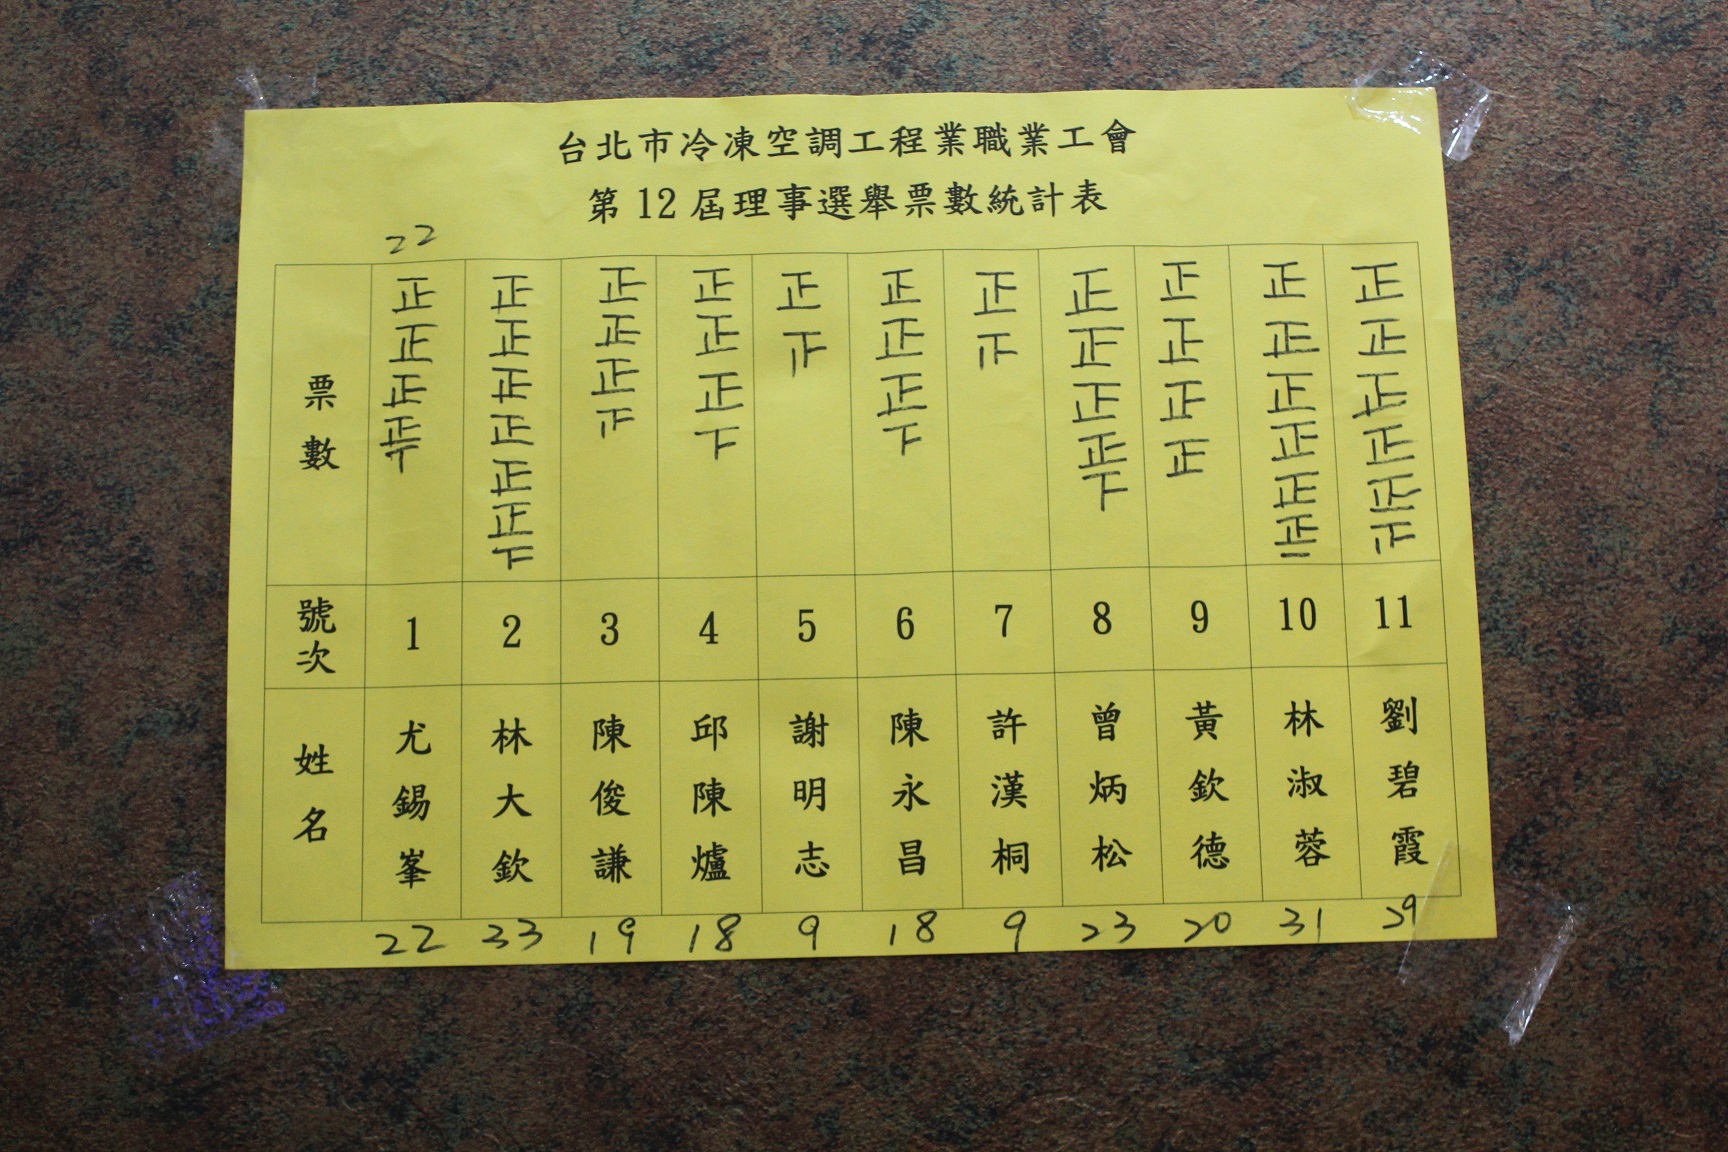 台北市冷凍空調工程業職業工會
第12屆理事選舉票數統計表
22
票數 正正正正丅 正正正正正正下 正正正 正正正下 正 正正正下 正 正正正正下 正正正正 正正正正正正一 正正正正正
號次 1 2 3 4 5 6 7 8 9 10 11
姓名 尤錫峯 林大欽 陳俊謙 邱陳爐 謝明志 陳永昌 許漢桐 曾炳松 黃欽德 林淑蓉 劉碧霞
22 33 19 18 9 18 9 23 20 31 29